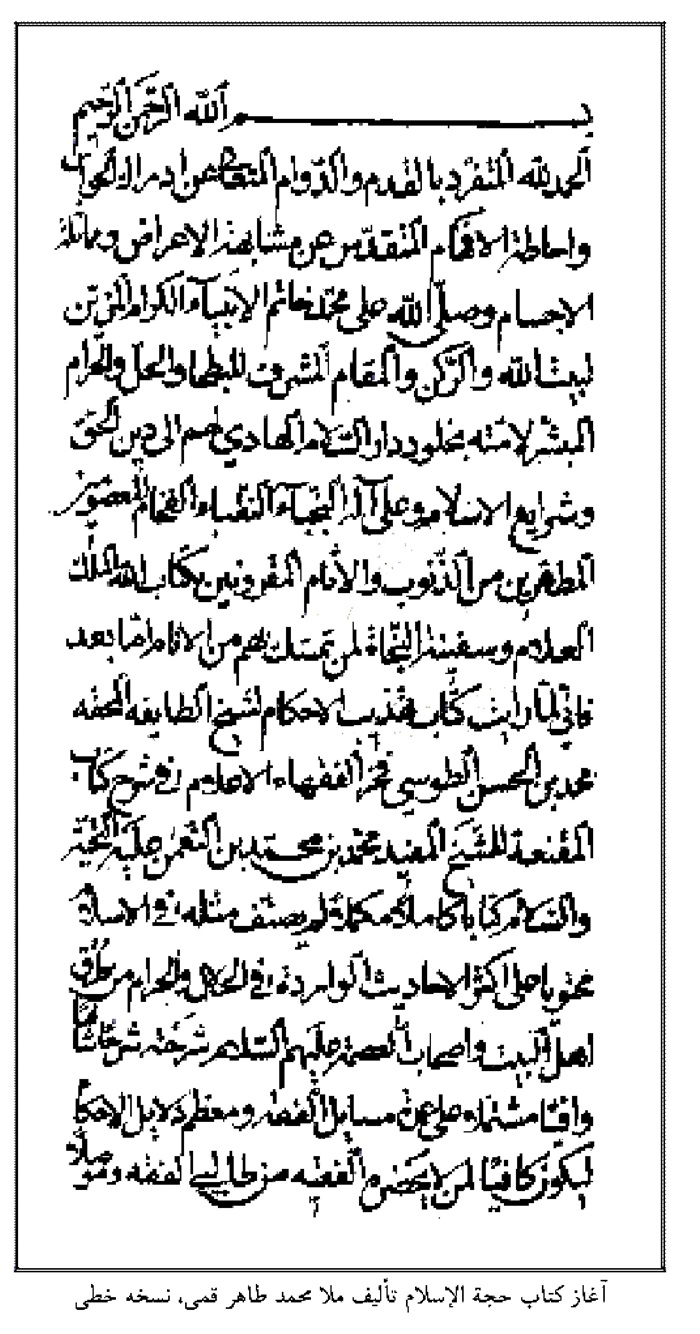 بسم الله الرحمن الرحيم
الحمد لله المتفرد بالقدم والدوام المتعالي عن ادراك الحواس
واحاطة الافهام المتقدس عن مشابهة الاعراض ومماثلة
الاجسام وصلى الله على محمد خاتم الانبياء الكرام المزين
لبيت الله والركن والمقام المشرف للبطحا والحل والحرام
المبشر لامته بخلود دار السلام الهادي لهم الى دين الحق
وشرايع الاسلام وعلى آله النجباء النقباء الفخام المعصومين
المطهرين من الذنوب والأثام المقرونين بكتاب الله الملك
العلام وسفينة النجاة لمن تمسك بهم من الانام اما بعد
فاني لما رايت كتاب تهذيب الاحكام لشيخ الطايفه المحقه
محمد بن الحسن الطوسي فخر الفقهاء الاعلام في شرح كتاب
المقنعة للشيخ المفيد محمد بن محمد بن النعمن عليه التحية
والسلام كتابا كاملا مكملا لم يصنف مثله في الاسلام
محتويا على اكثر الاحاديث الواردة في الحلال والحرام من طرق
اهل البيت واصحاب العصمة عليهم السلام شرحته شرحا شافيا
وافيا مشتملا على مسايل الفقه ومعظم دلايل الاحكام
ليكون كافيا لمن لا يحضره الفقيه من طالبي الفقه وموصلا
آغاز كتاب حجة الإسلام تأليف ملا محمد طاهر قمى، نسخه خطى